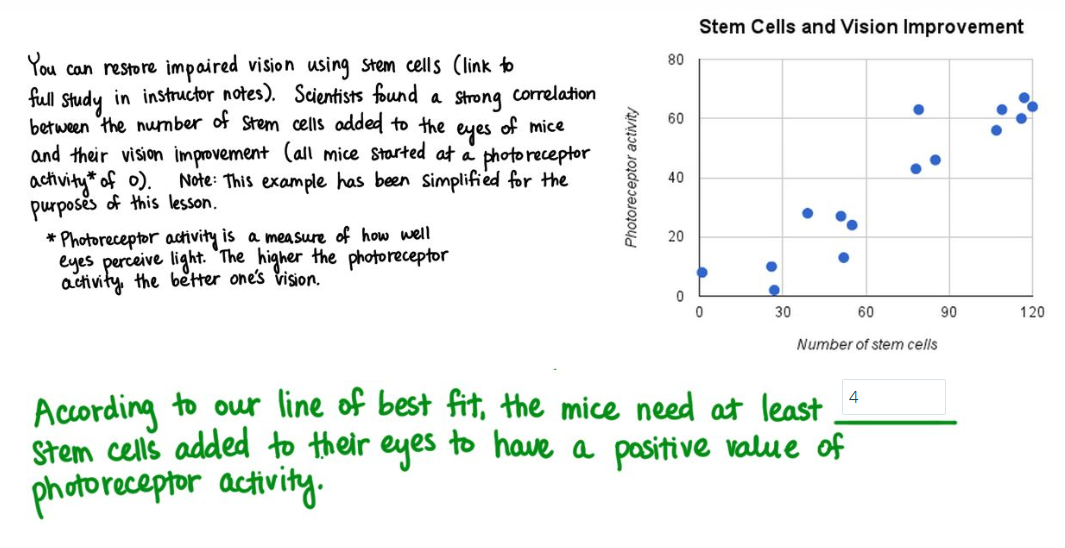 Stem Cells and Vision Improvement
You can restore impaired vision using stem cells (link to
full study in instructor notes). Scientists found a strong correlation
between the number of stem cells added to the eyes of mice
and their vision improvement (all mice started at a photoreceptor
activity* of 0). Note: This example has been simplified for the
purposes of this lesson.
* Photoreceptor activity is a measure of how well
eyes perceive light. The higher the photoreceptor
activity, the better one's vision.
Photoreceptor activity
80
60
40
20
0
0 30 60 90 120
Number of stem cells
According to our line of best fit, the mice need at least 4
stem cells added to their eyes to have a positive value of
photoreceptor activity.